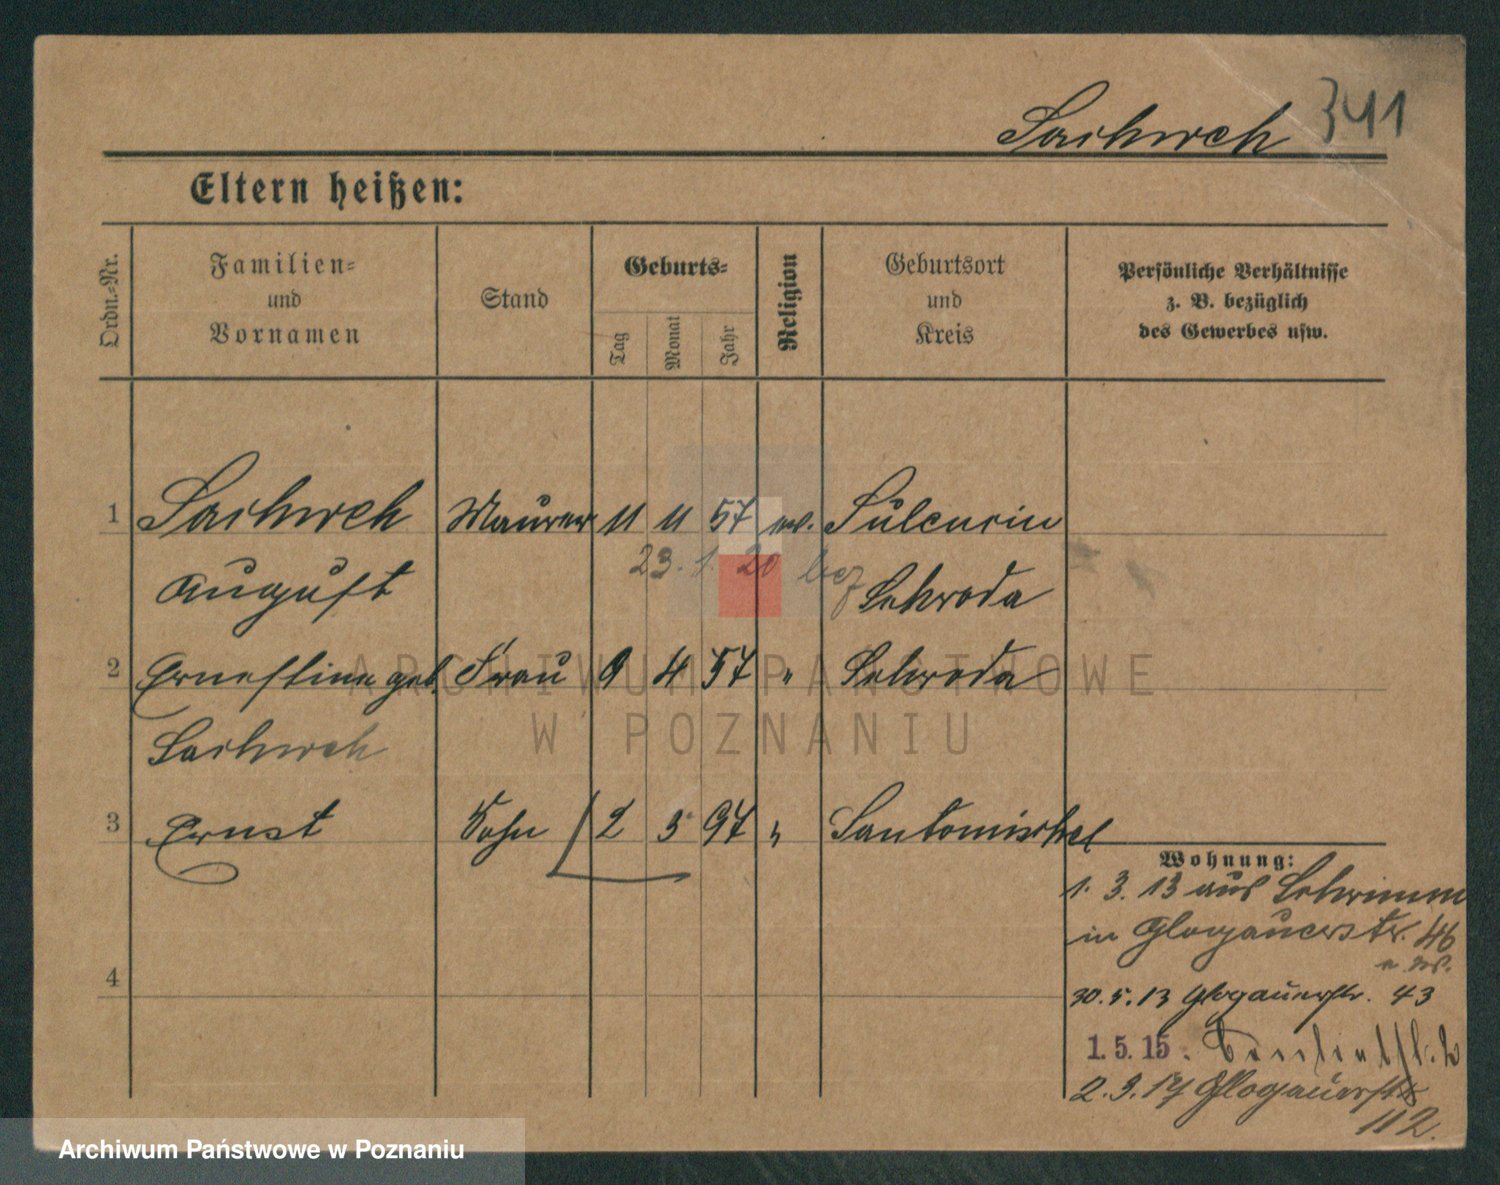 Sachweh 341
Eltern heißen:
Ordn.-Nr.
Familien-
und
Vornamen
Stand
Geburts-
Tag
Monat
Jahr
Religion
Geburtsort
und
Kreis
Persönliche Verhältnisse
z. B. bezüglich
des Gewerbes usw.
1 Sachweh Maurer 11 11 57 ev. Sulencin
23. 1. 20
August Schroda
2 Ernestine geb. Frau 9 4 57 " Schroda
Sachweh
3 Ernst Sohn 2 3 97 " Santomischel
Wohnung:
1. 3. 13 aus Schrimm
in Glogauerstr. 46
30. 5. 13 Glogauerstr. 43
4
1. 5. 15.
2. 9. 17 Glogauerstr
112.
ARCHIWUM PAŃSTWOWE
W POZNANIU
Archiwum Państwowe w Poznaniu